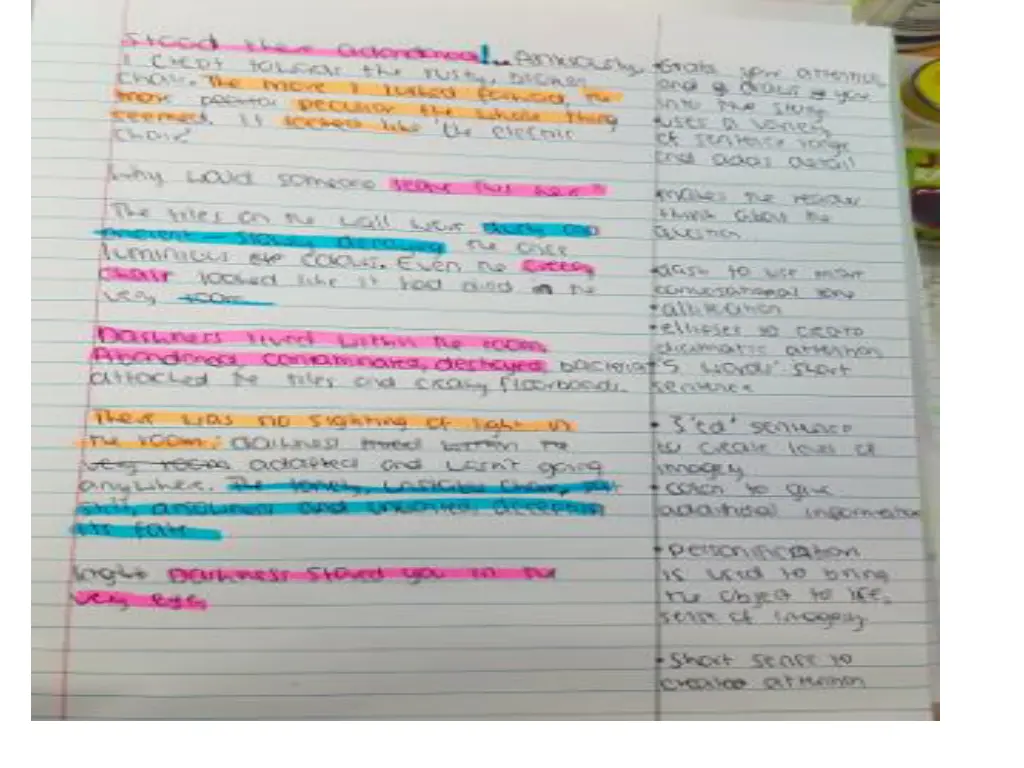 Stood there abandoned!.. Anxiously,
I crept towards the rusty, broken
chair. The more I looked forward, the
more peculiar the whole thing
seemed. It looked like 'the electric
chair'
Why would someone leave this here?
The tiles on the wall were dusty and
ancient - slowly decaying the once
luminous colours. Even the creepy
chair looked like it had died in the
very room
Darkness lived within the room.
Abandoned, contaminated, destroyed bacteria
attached the tiles and creaky floorboards.
There was no sighting of light in
the room; darkness lived within the
very room adapted and wasn't going
anywhere. The lonely, chair, sat
still, and unwanted, accepting
its fate
Darkness stared you in the
very eyes
•Grabs your attention
and draws you
into the story
•uses a variety
of sentence range
and adds detail
•makes the reader
think about the
question..
•dash to use more
conversational tone
•alliteration
•ellipses to create
dramatic attention
•5 words' short
sentence
•3 'ed' sentence
to create level of
imagery
•colon to give
additional information
•personification
is used to bring
the object to life,
sense of imagery
•Short sense to
create attention